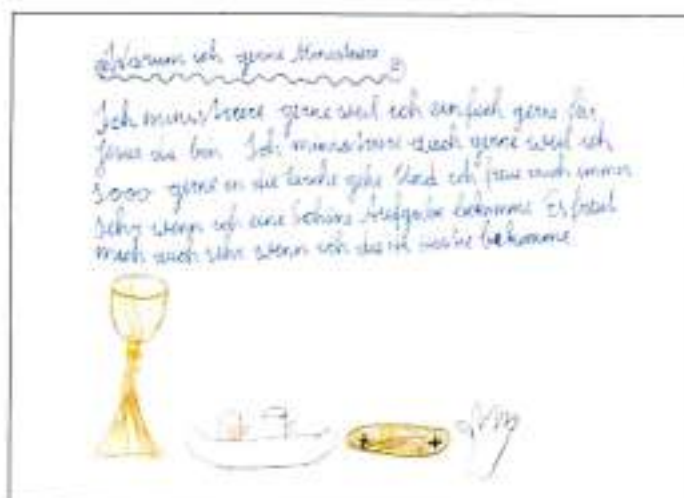 Warum ich gerne Ministriere
Ich ministriere gerne weil ich einfach gerne für
Jesus da bin. Ich ministriere auch gerne weil ich
sooo gerne in die Kirche gehe Und ich freue mich immer
sehr wenn ich eine schöne Aufgabe bekomme Es freut
mich auch sehr wenn ich bekomme